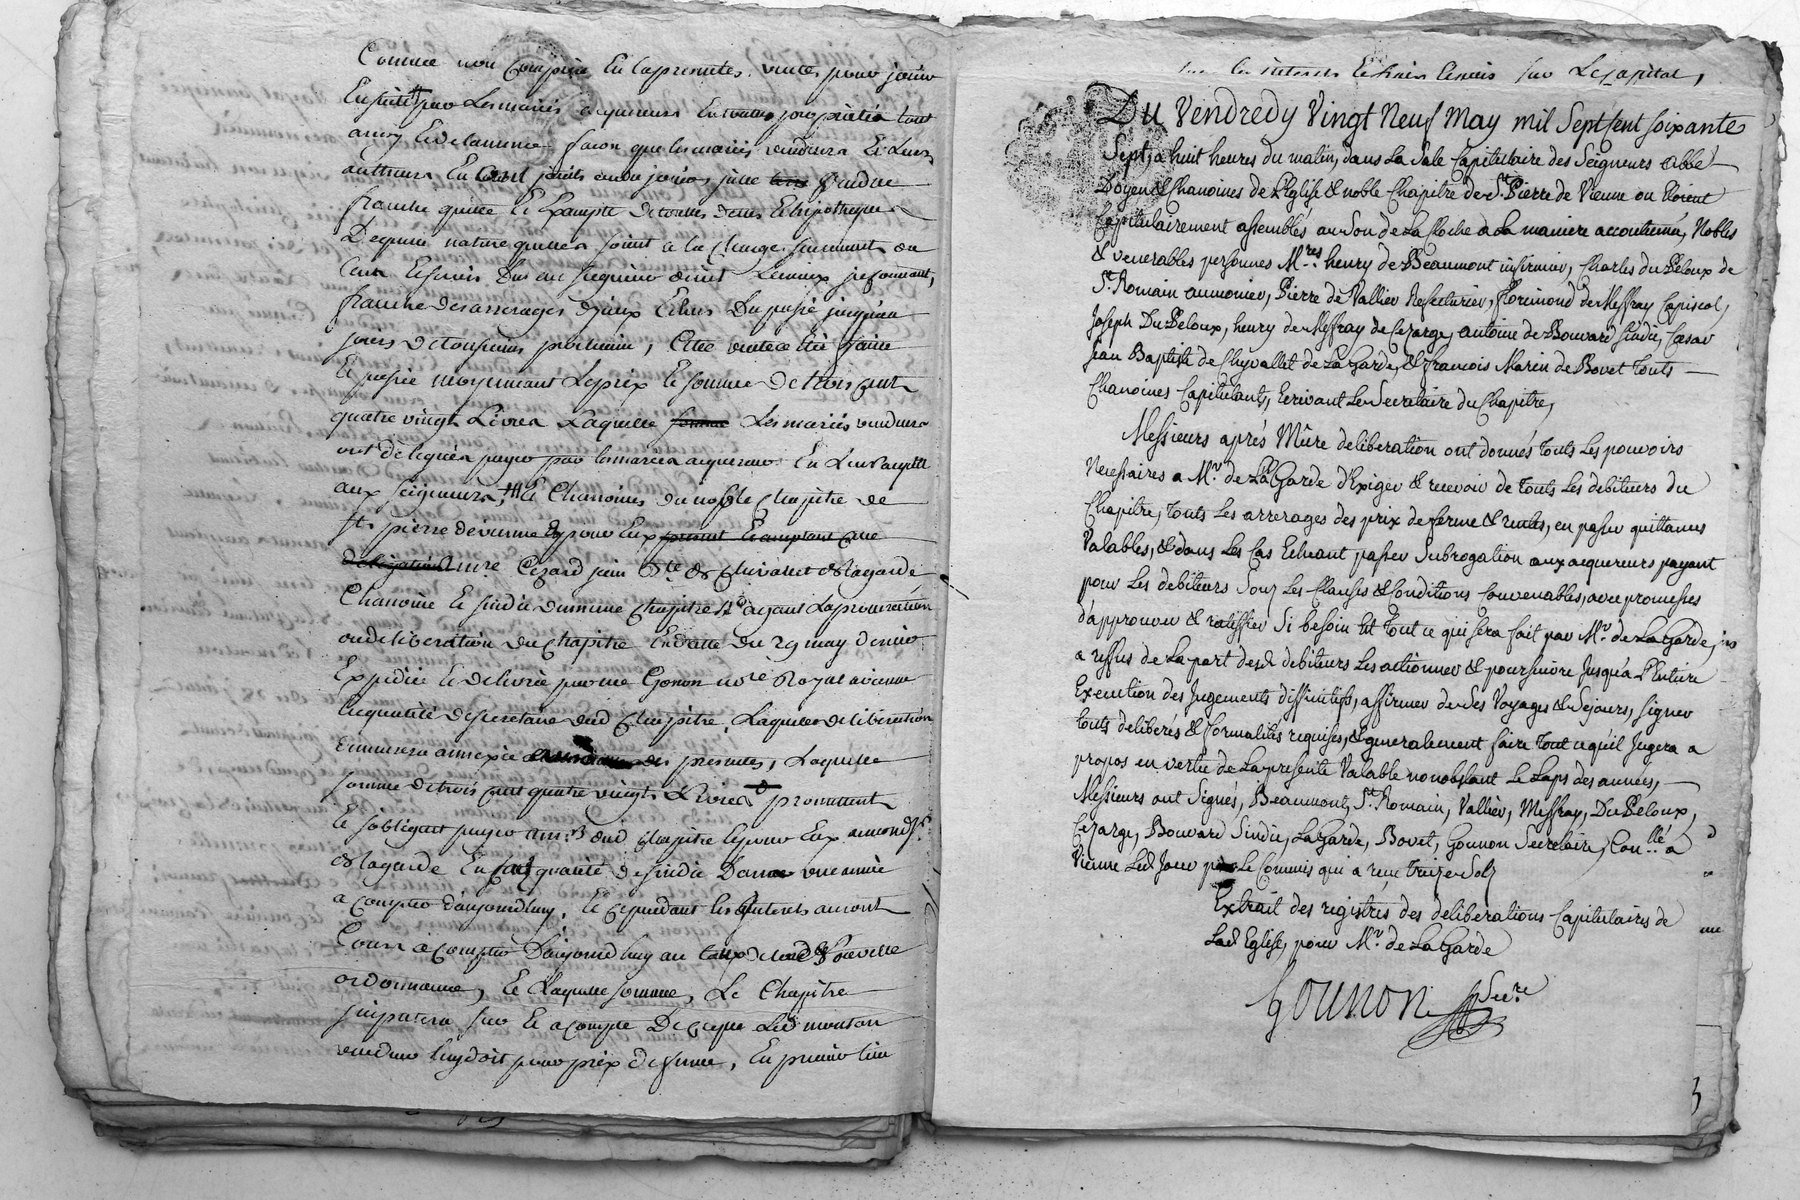 Comme non Comprise En la presentes ventes pour jouir
En suitte par Les mariés acquereurs En toutte proprieté tout
ainsy Et de la meme façon que les mariés vendeurs Et Leurs
autheurs En ont jouis ou du jouir
franche quitte Et Exempte de touttes dettes Et hipotheques
De quune nature quelles soient a la Charge seulement du
franche des arrerages d'jceux Et lods Du passé jusques au
jours de toussaints prochain, Cette vente a Eté faitte
Et passée moyennant Le prix Et somme De trois Cent
quatre vingt Livres Laquelle somme Les mariés vendeurs
ont délégués payer par les mariés acquereurs En Leur acquitt
aux seigneurs Et Chanoines du noble Chapitre de
St pierre de vienne Et pour Eux present Et acceptant Cette
delegation mre Cezard jean Bte de Chivallet de Lagarde
Chanoine Et sindic du meme Chapitre ayant La procuration
ou deliberation du Chapitre En datte du 29 may dernier
Expediée Et delivrée par me Gonon nore Royal a vienne
En qualité de secretaire dud Chapitre, Laquelle deliberation
demeurera annexée des presentes, Laquelle
somme de trois Cent quatre vingt Livres promettent
Et sobligent payer dud Chapitre Et pour Eux
de Lagarde En sa qualité de sindic Dans une année
a Compter d'aujourdhuy, Et Cependant les Interets auront
Cours a Compter D'aujourdhuy au taux de Lad Nouvelle
ordonnance, Et Laquelle somme, Le Chapitre
jmputera sur Et a Compte De Ce que Led mouton
vendeur luy doit pour prix de ferme, En premier lieu
sur Les interets Et frais Ensuis sur Le Capital,
Du Vendredy Vingt Neuf May mil Sept Cent soixante
Sept, a huit heures du matin, dans La Sale Capitulaire des Seigneurs Abbé
Doyen & Chanoines de L'Eglise & noble Chapitre de St Pierre de Vienne ou Etoient
Capitulairement assemblés au Son de La Cloche a La maniere accoutumé, Nobles
& venerables personnes Mres. henry de Beaumont infirmier, Charles Du Peloux de
St. Romain aumonier, Pierre de Vallier Refecturier, florimond de Meffray Capiscol,
Joseph Du Peloux, henry de Meffray de Cezarge, antoine de Bouvard Sindic, Cæsar
jean Baptiste de Chyvallet de La Garde, & francois Marin de Bovet Touts
Chanoines Capitulants, Ecrivant Le Secretaire du Chapitre,
Messieurs aprés Mûre deliberation ont donnés Touts Les pouvoirs
Necessaires a Mr. de La Garde d'Exiger & recevoir de Touts Les debiteurs du
Chapitre, Touts Les arrerages des prix de ferme & rentes, en passer quittances
Valables, & dans Les Cas Echeant passer Subrogation aux acquereurs payant
pour Les debiteurs Sous Les Clauses & Conditions Convenables, avec promesses
d'approuver & ratiffier Si besoin Est Tout ce qui sera fait par Mr. de La Garde,
a reffus de La part desd debiteurs Les actionner & poursuivre Jusqu'a L'Entiere
Execution des Jugements diffinitifs, affirmer de Ses Voyages & Sejours, signer
touts deliberés & formalités requises, & generalement faire Tout ce qu'il Jugera a
propos en vertu de La presente Valable nonobstant Le Laps des années,
Messieurs ont Signés, Beaumont, St. Romain, Vallier, Meffray, Du Peloux,
Cezarge, Bouvard Sindic, La Garde, Bovet, Gounon Secretaire, Conllé. à
Vienne Led Jour par Le Commis qui a recu Treize Sols
Extrait des registres des deliberations Capitulaires de
Lad Eglise, pour Mr. de La Garde
Gounon Secre.
3